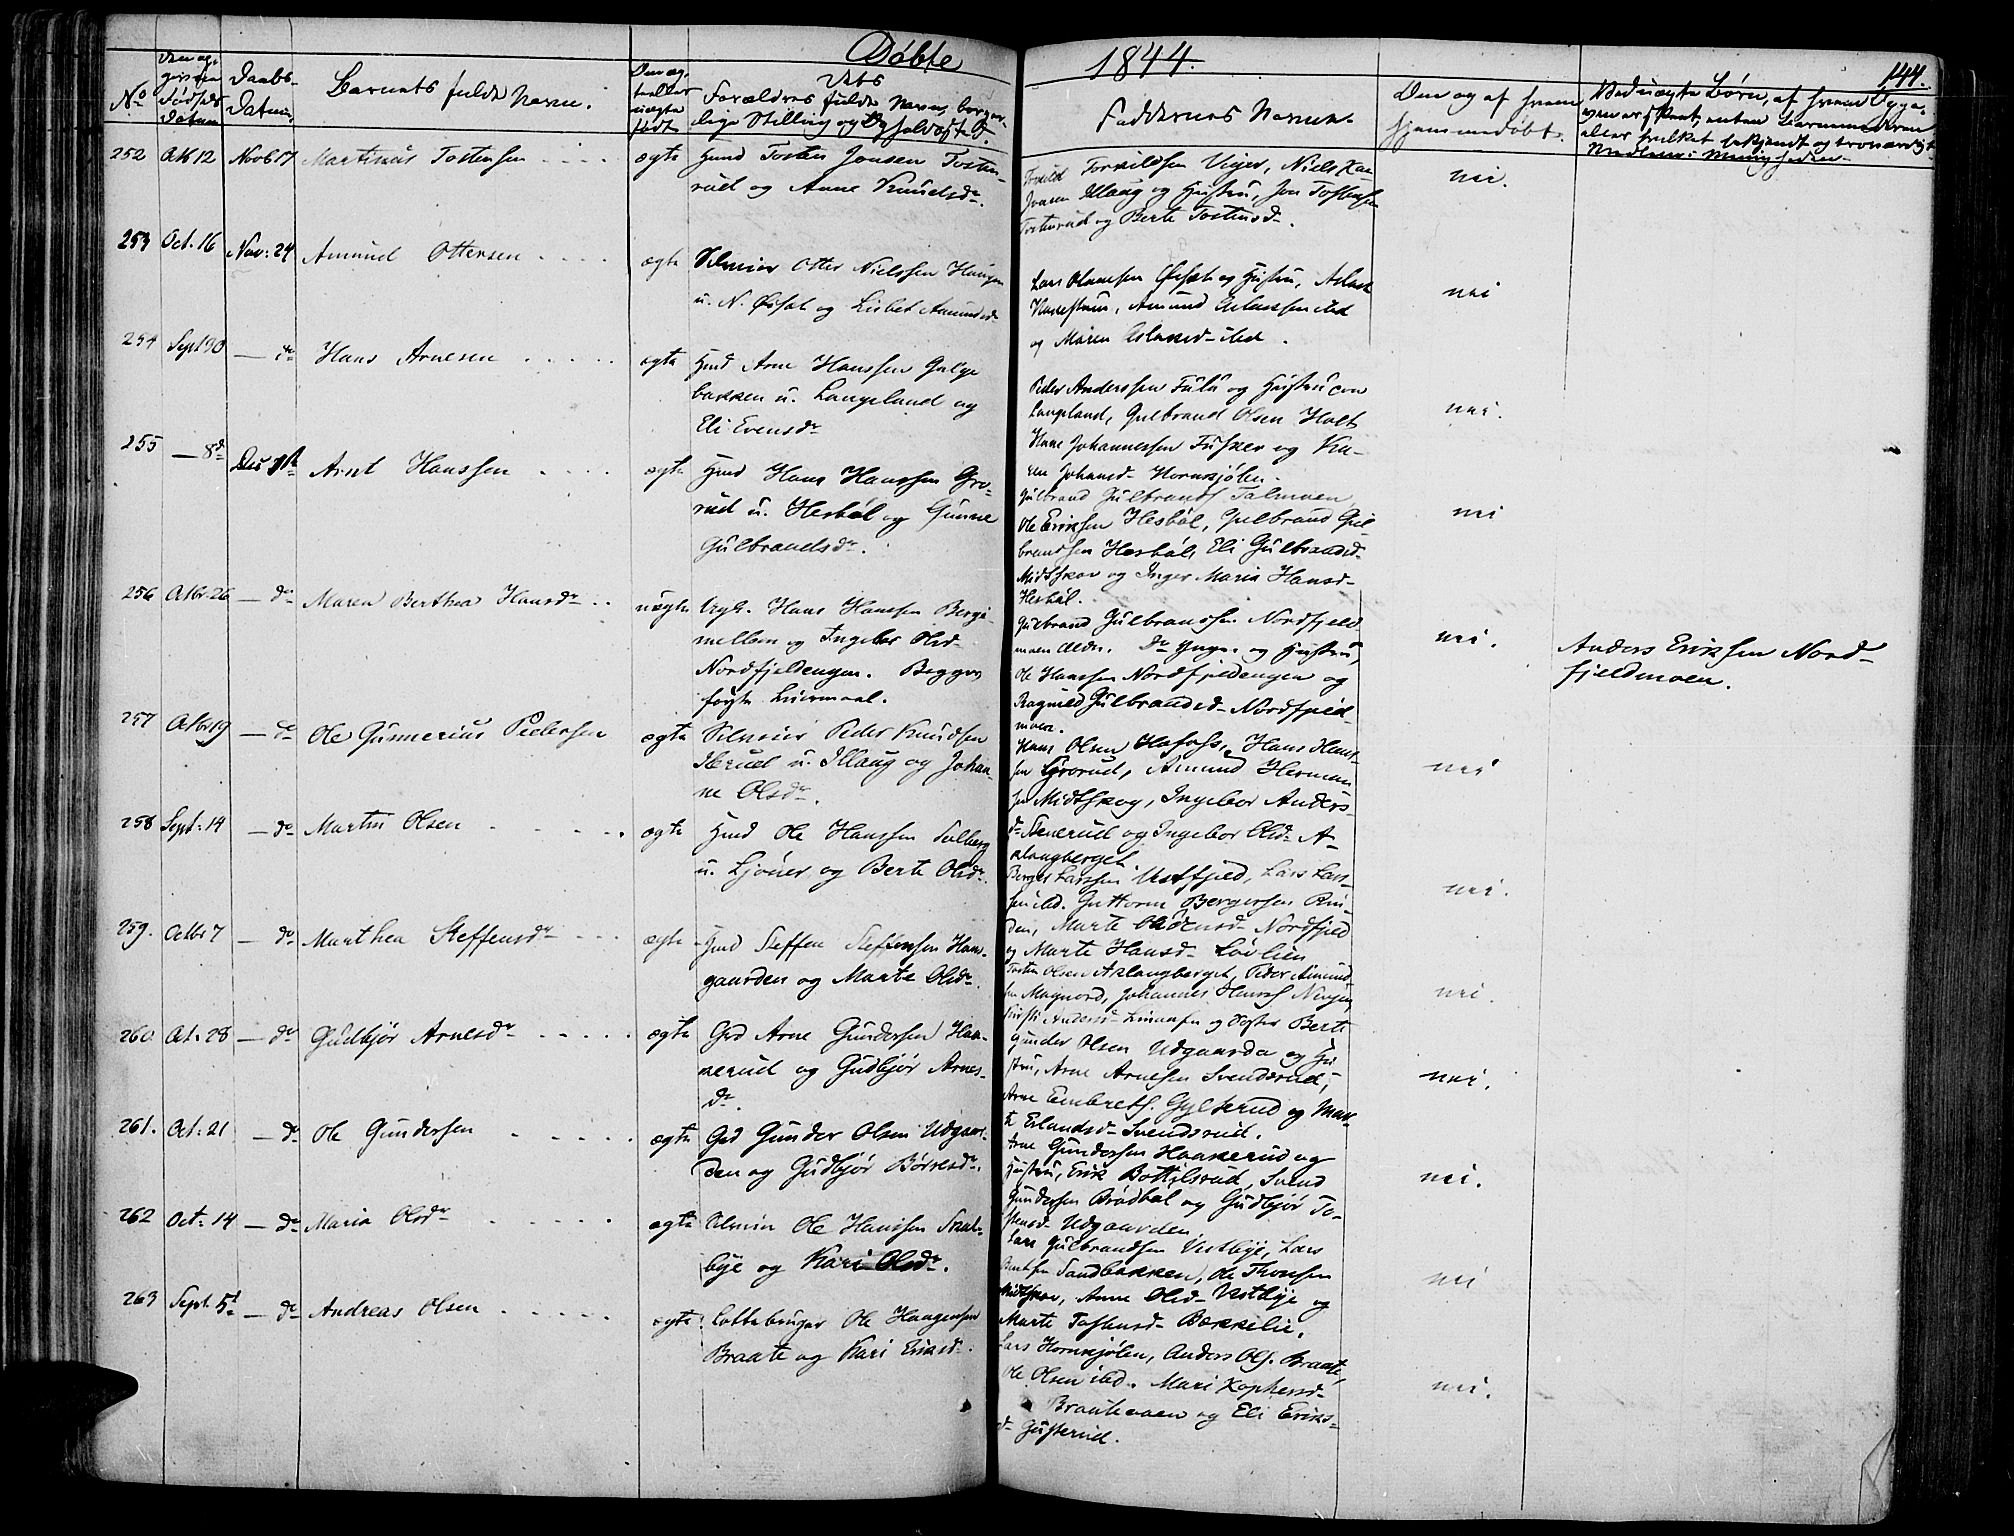 Døbte 1844.
144.
No
Daabs-
Datum.
Barnets fulde Navn.
Forældres fulde Navne, borger-
lige Stilling og
Faddernes Navne.
Om og af hvem
hjemmedøbt.
252 Okt 12 Novb 17 Martinus Tostensen ægte Gmd Tosten Jonsen Tosten-
rud og Anne Knudsdr.
Torkildsen Vinger, Niels
Jonsen Illaug og Hustru, Jon Tostensen
Tostenrud og Berte Tostensd.
nei.
253 Oct. 16 Nov: 24 Amund Ottersen ægte Selveier Otter Nielssen Haugen
u. N. Øisæt og Lisbet Amundsd
Lars Olavesen Øisæt og Hustru, Aslak
Amund Erlandsen ibd
og Maren Aslaksd ibd.
nei
254 Sept 30 — do Hans Arnesen ægte Hmd Arne Hanssen Galge
bakken u. Langeland og
Eli Evensdr
Peder Anderssen Fulu og Hustru
Langeland, Gulbrand Olsen Holt
Hans Johannessen Fusker og Ka-
ren Johansd Hornsjølen.
nei.
255 — 8d Dec 1ste Arnt Hanssen ægte Hmd Hans Hanssen Gro-
rud u. Hesbøl og Gunne
Gulbrandsdr.
Gulbrand Gulbrands Talmoen
Ole Erikssen Hesbøl, Gulbrand Gul-
brandsen Hesbøl, Eli Gulbrandsd
Midtskov og Inger Maria Hansd
Hesbøl.
nei
256 Oktbr 26 — do Maren Berthea Hansdr uægte Ungk. Hans Hanssen Berge
mellem og Ingebor Olsd
Nordfjeldengen. Begges
første Leiermaal.
Gulbrand Gulbranssen Nordfjeld
moen ældre. Do yngre og Hustru,
Ole Hanssen Nordfjeldengen og
Ragnild Gulbrandsd Nordfjeld
moen.
nei.
Anders Eriksen Nord-
fjeldmoen.
257 Oktbr 19 — do Ole Gunnerius Pedersen ægte Selveier Peder Knudsen
Skrud u. Illaug og Johan-
ne Olsdr.
Hans Olsen Hofoss, Hans Hans-
sen Grorud, Amund Herman
sen Midtskog, Ingebor Anders
d Stenerud og Ingebor Olsd A-
slangberget.
nei
258 Sept. 14 — do Martin Olsen ægte Hmd Ole Hanssen Solberg
u. Ljøner og Berte Olsdr.
Berger Larssen Vestfjeld, Lars Lars-
sen ibd. Guttorm Bergersen Rus-
den, Marte Nordfjeld
og Marte Hansd Løvlien
nei.
259. Octbr 7 — do Marthea Steffensdr ægte Gmd Steffen Steffensen Hans-
gaarden og Marte Olsdr.
Tosten Olsen Aslangberget, Peder Amund
sen Magnord, Johannes Hanss
Kirsti Andersd og Berte
nei.
260 Oct. 28 — do Gudbjør Arnesdr ægte Grd Arne Gundersen Haa-
kerud og Gudbjør Arnes-
dr.
Gunder Olsen Udgaarden og Hu
stru, Arne Arnesen Svendsrud,
Arne Embrets. Gylterud og Mar-
te Erlandsd Svendsrud.
nei.
261. Oct. 21 — do Ole Gundersen ægte Grd Gunder Olsen Udgaar-
den og Gudbjør Børresdr.
Arne Gundersen Haakerud og
Hustru, Erik Bottilsrud, Svend
Gundersen Brødbøl og Gudbjør To-
stensd Udgaarden
nei.
262 Oct. 14 — do Maria Olsdr ægte Selveier Ole Hanssen Snal-
bye og Kari Olsdr.
Lars Gulbrandsen Vestbye, Lars
Sandbakken, Ole Thorsen
Midtskov, Anne Olsd Vestbye og
Marte Tostensd Bækkelie.
nei
263 Sept. 5t — do Andreas Olsen ægte Lottebruger Ole Haagensen
Braate og Kari Eriksd.
Lars Hornsjølen, Anders Ols. Braate,
Ole Olsen ibd. Mari
Braatemoen og Eli Eriks-
d Gusterud.
nei.